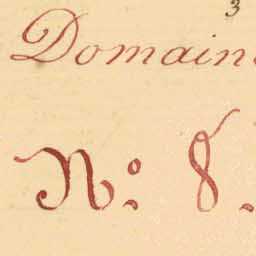 3
Domaine
N.º 8.